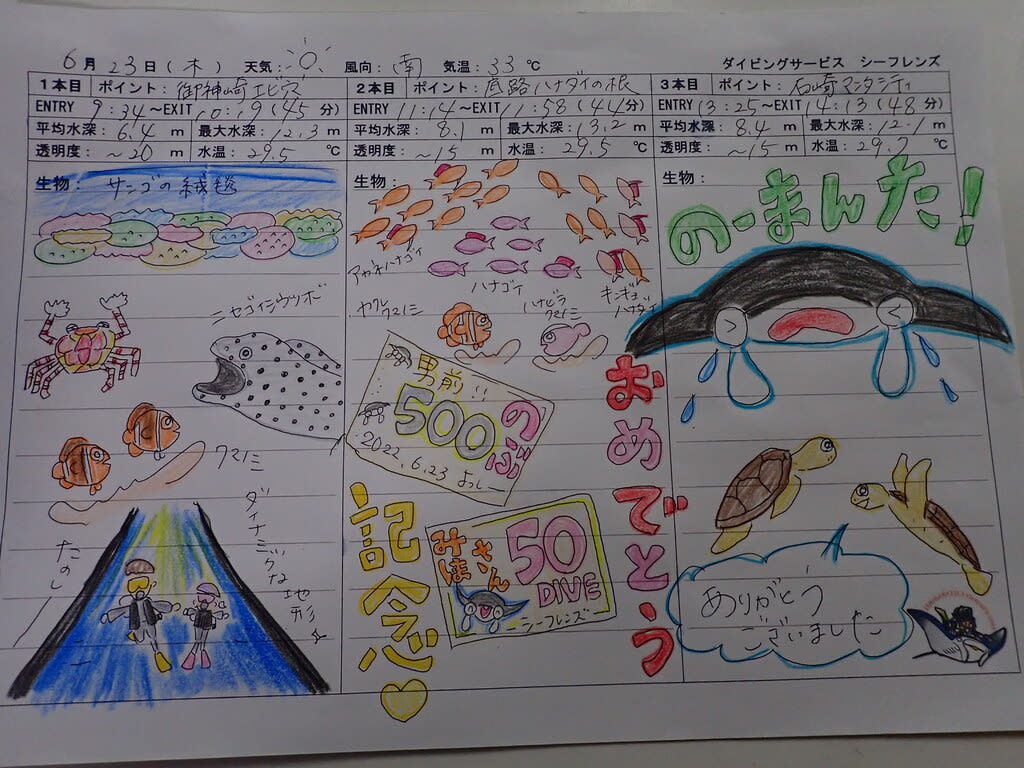 6月23日(木) 天気: 風向:南 気温:33℃ ダイビングサービス シーフレンズ
1本目 ポイント:御神崎エビ穴
ENTRY 9:34～EXIT 10:19(45分)
平均水深:6.4m 最大水深:12.3m
透明度:～20m 水温:29.5℃
生物:サンゴの絨毯
ニセゴイシウツボ
クマノミ
ダイナミックな
地形
たのし
2本目 ポイント:底路ハナダイの根
ENTRY 11:14～EXIT 11:58(44分)
平均水深:8.1m 最大水深:13.2m
透明度:～15m 水温:29.5℃
生物:
アカネハナゴイ
ハナゴイ
キンギョ
ハナダイ
ヤクレ
クマノミ
ハナビラ
クマノミ
男前!!
500
のぶ
2022.6.23 よっしー
記念♡
みほさん
50
DIVE
シーフレンズ
おめでとう
3本目 ポイント:石崎マンタシティ
ENTRY 13:25～EXIT 14:13(48分)
平均水深:8.4m 最大水深:12.1m
透明度:～15m 水温:29.7℃
生物:
のーまんた!
ありがとう
ございました